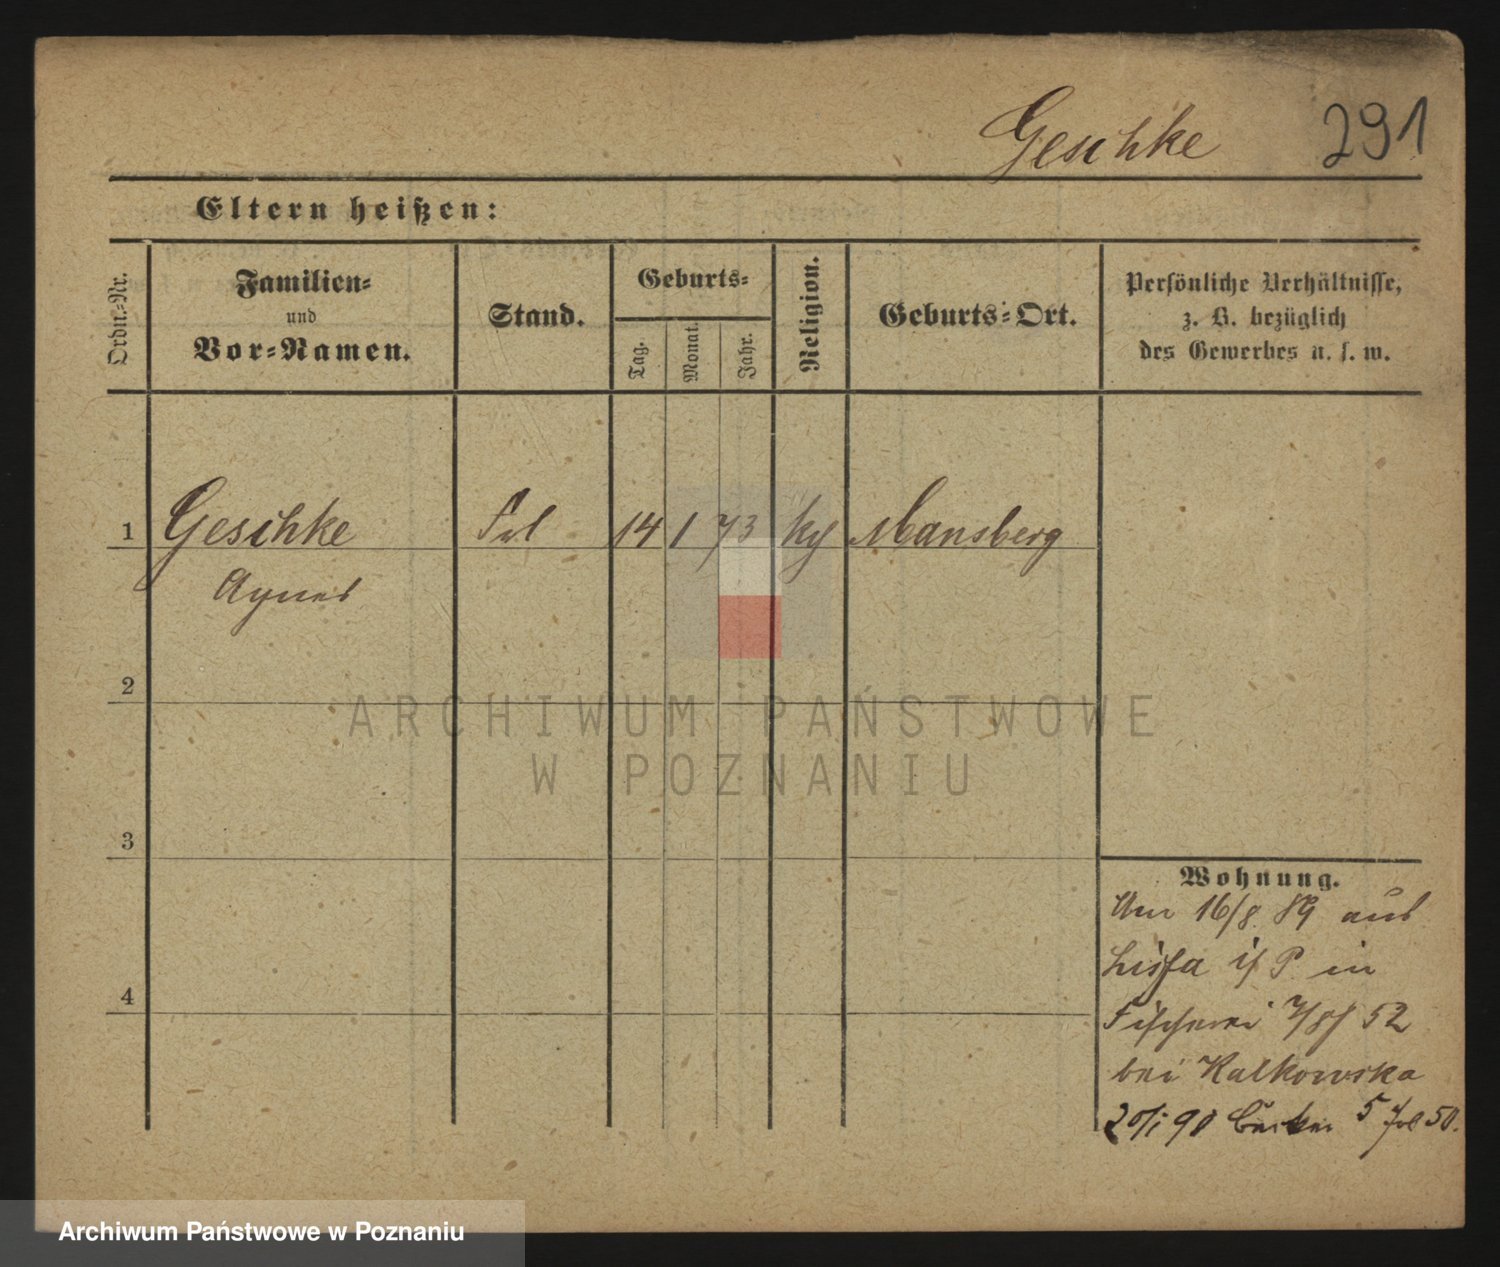 Geschke 291
Eltern heißen:
Ordn.-Nr.
Familien-
und
Vor-Namen.
Stand.
Geburts-
Tag.
Monat.
Jahr.
Religion.
Geburts-Ort.
Persönliche Verhältnisse,
z. B. bezüglich
des Gewerbes u. s. w.
1 Geschke Frl 14 1 73 Mansberg
Agnes
2
3
4
Wohnung.
Am 16/8. 89 aus
Lissa i/P in
Fischerei 7/8/ 52
bei Kalkowska
20/1 90 5 50.
ARCHIWUM PAŃSTWOWE
W POZNANIU
Archiwum Państwowe w Poznaniu